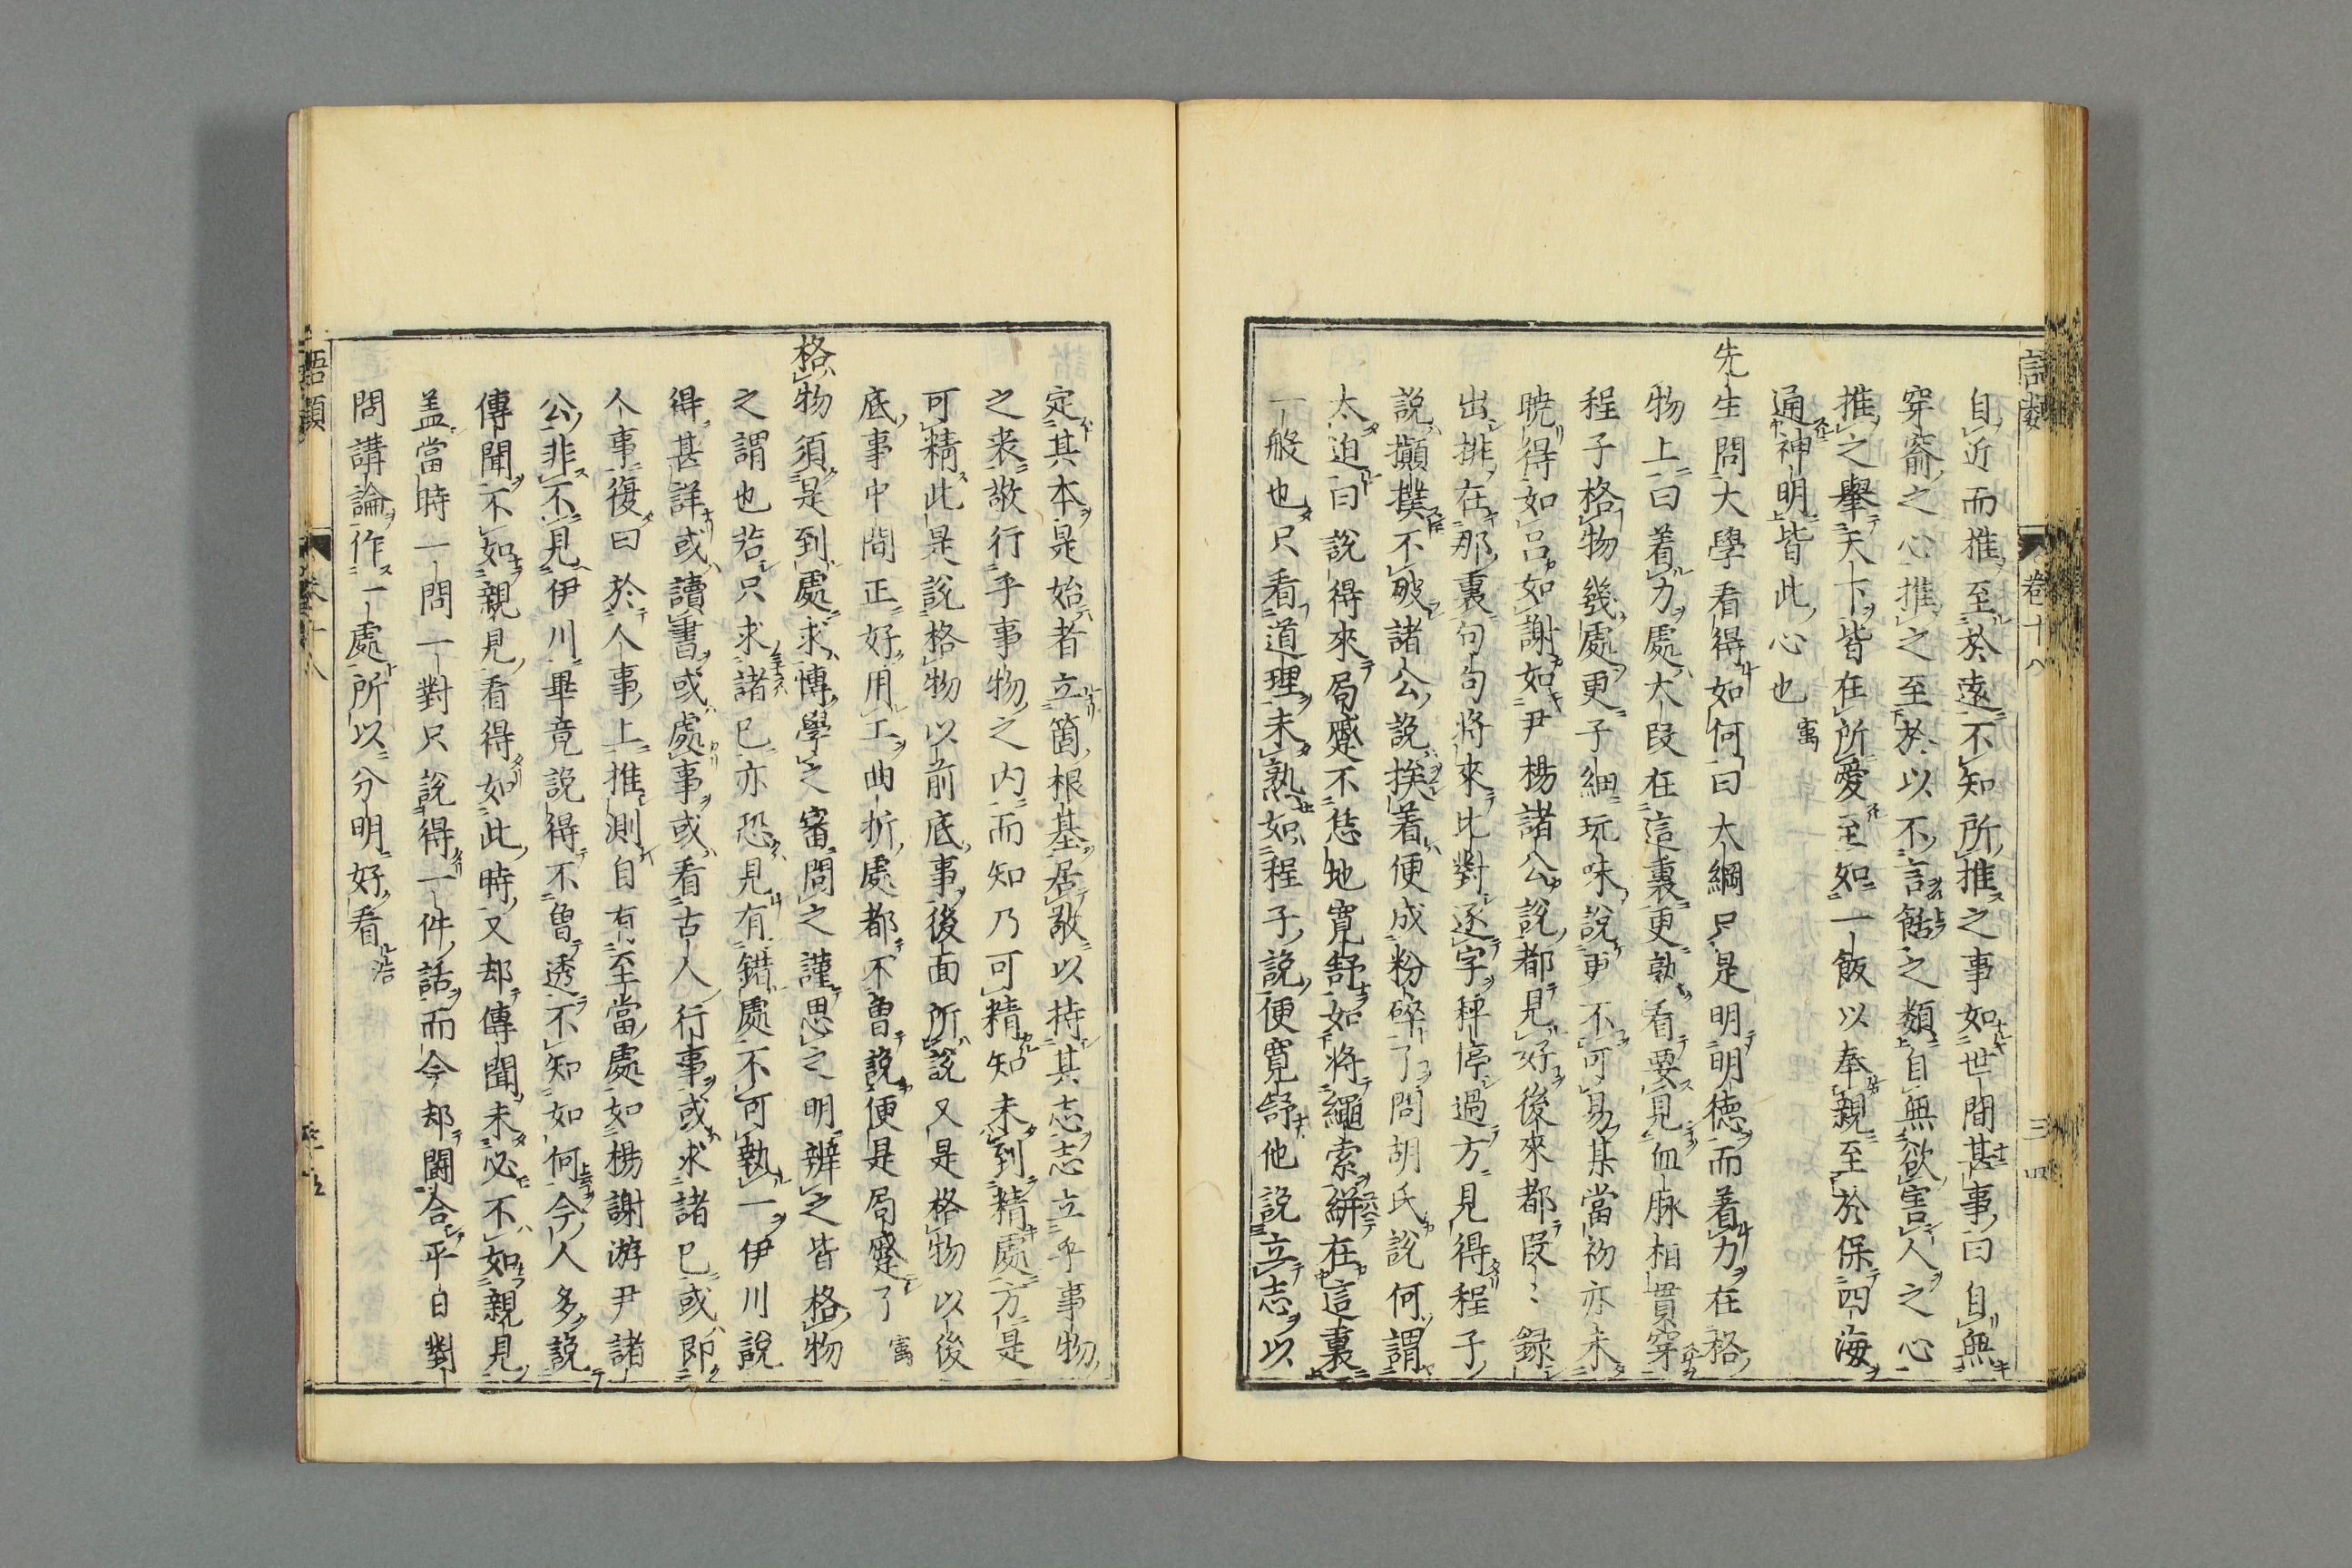 語類 卷十八 三四
自近而推至於遠不知所推之事如世間甚事曰自無
穿窬之心推之至於以不言餂之類自無欲害人之心
推之舉天下皆在所愛至如一飯以奉親至於保四海
通神明皆此心也 㝢
先生問大學看得如何曰大綱只是明明德而着力在格
物上曰着力處大段在這裏更熟看要見血脉相貫穿
程子格物幾處更子細玩味說更不可易某當初亦未
曉得如呂如謝如尹楊諸公說都見好後來都段〻録
出排在那裏句句將來比對逐字秤停過方見得程子
說攧撲不破諸公說挨着便成粉碎了問胡氏說何謂
太迫曰說得來局蹙不恁地寬舒如將繩索絣在這裏
一般也只看道理未熟如程子說便寛舒他說立志以
定其本是始者立箇根基居敬以持其志志立乎事物
之表敬行乎事物之内而知乃可精知未到精處方是
可精此是說格物以前底事後面所說又是格物以後
底事中間正好用工曲折處都不曽說便是局蹙了 㝢
格物須是到處求博學之審問之謹思之明辨之皆格物
之謂也若只求諸己亦恐見有錯處不可執一伊川說
得甚詳或讀書或處事或看古人行事或求諸己或即
人事復曰於人事上推測自有至當處如楊謝游尹諸
公非不見伊川畢竟說得不曽透不知如何今人多說
傳聞不如親見看得如此時又却傳聞未必不如親見
盖當時一問一對只說得一件話而今却鬪合平日對
問講論作一處所以分明好看 浩
語類 卷十八